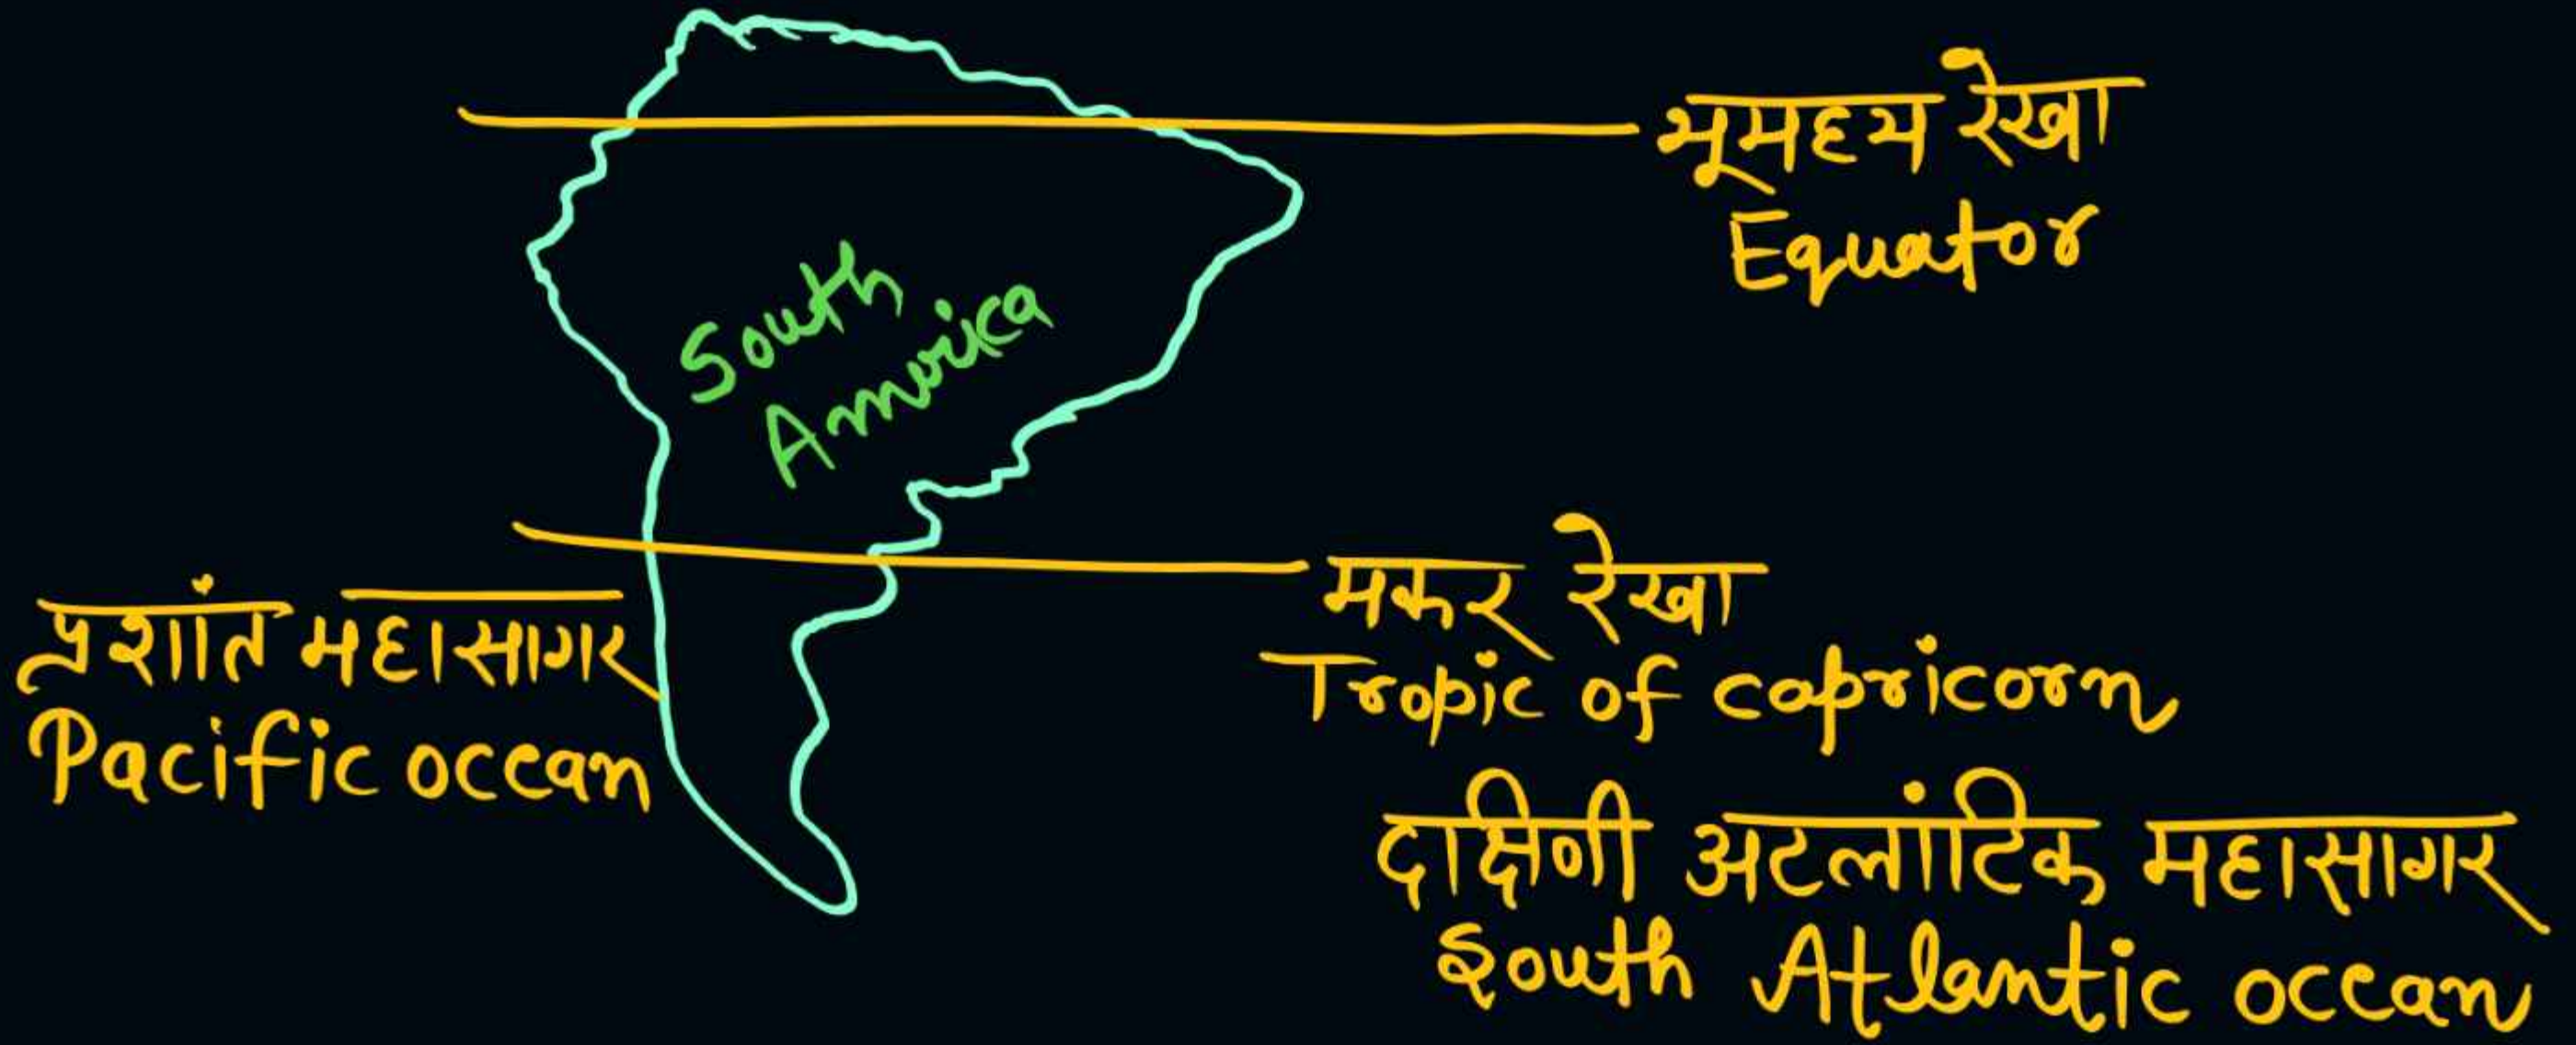 भूमध्य रेखा
Equator
South
America
मकर रेखा
Tropic of capricorn
प्रशांत महासागर
Pacific ocean
दक्षिणी अटलांटिक महासागर
South Atlantic ocean